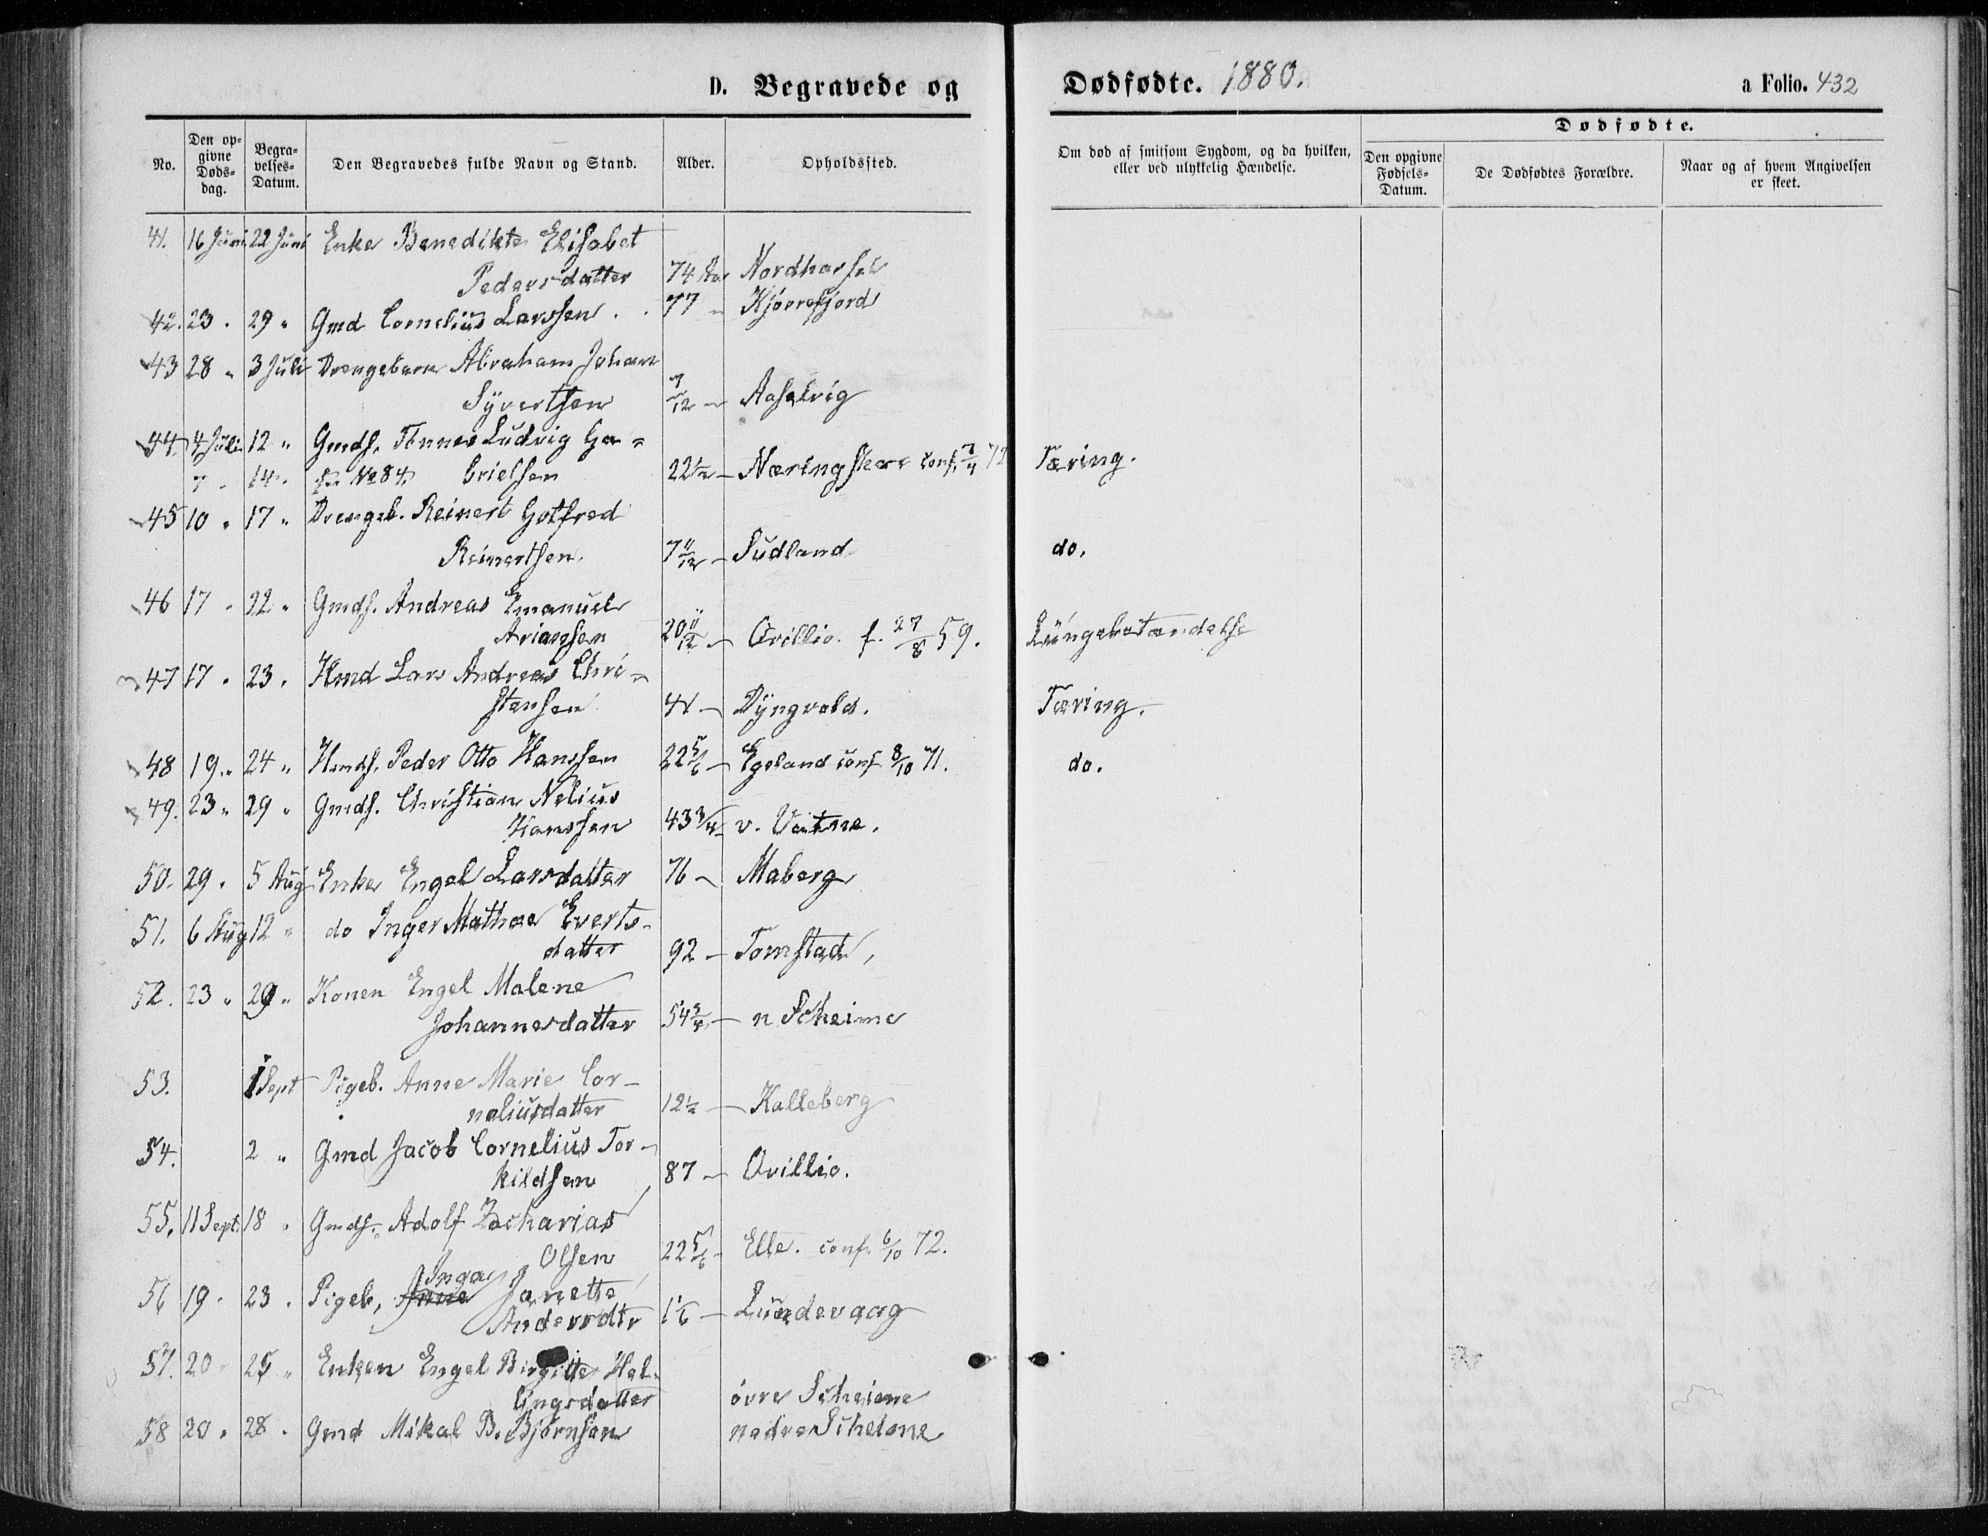 D. Begravede og Dødfødte. 1880. a Folio. 432
No. Den opgivne Dødsdag. Begravelses-Datum. Den Begravedes fulde Navn og Stand. Alder. Opholdssted. Om død af smitsom Sygdom, og da hvilken, eller ved ulykkelig Hændelse. Dødfødte.
Den opgivne Fødsels-Datum. De Dødfødtes Forældre. Naar og af hvem Angivelsen er skeet.
41. 16 Juni 22 Juni Enke Benedikte Elisabet
Pedersdatter 74 Aar Nordhassel
42. 23 . 29 " Gmd Cornelius Larssen . . 77 " Kjørrefjord
43 28 " 3 Juli Drengebarn Abraham Johan
Syvertsen 7/12 — Aaselvig
44. 4 Juli 12 " Gmds. Tønnes Ludvig Ga-
7 . 14 . No 84, brielsen 22 1/2 — Næringstera conf. 7/4 72 Tæring.
45 10 " 17 " Drengeb. Reinert Gotfred
Reinertsen. 7 11/12 — Sudland do.
46 17 " 22 " Gmds. Andreas Emanuel
Ariansen 20 11/12 — Ovillio. f. 27/8 59. Lungebetændelse
47 17 " 23 " Hmd Lars Andreas Chri-
stensen 41 — Dyngvold. Tæring.
48 19 " 24 " Hmds. Peder Otto Hanssen 22 5/6 — Egeland conf 8/10 71. do.
49. 23 " 29 " Gmds. Christian Nelius
Hanssen 43 3/4 v. Vatne.
50. 29 . 5 Aug Enke Engel Larsdatter 76 — Maberg
51. 6 Aug 12 " do Inger Mathea Everts-
datter 92 — Tomstad,
52. 23 " 29 " Konen Engel Malene
Johannesdatter 54 3/4 — n Scheime
53. 1 Sept Pigeb. Anne Marie Cor-
neliusdatter 12 1/2 — Kalleberg
54. 2 " Gmd Jacob Cornelius Tor-
kildsen 87 — Ovillio.
55. 11 Sept. 18 " Gmds. Adolf Zacharias
Olsen 22 5/6 — Elle. conf. 6/10 72.
56 19 . 23 . Pigeb, Inga Janette
Andersdtr 1 1/6 — Lundevaag
57. 20 " 25 " Enken Engel Birgitte Hel-
lingsdatter øvre Scheime
58 20 . 28 . Gmd Mikal B. Bjørnsen nedre Scheime